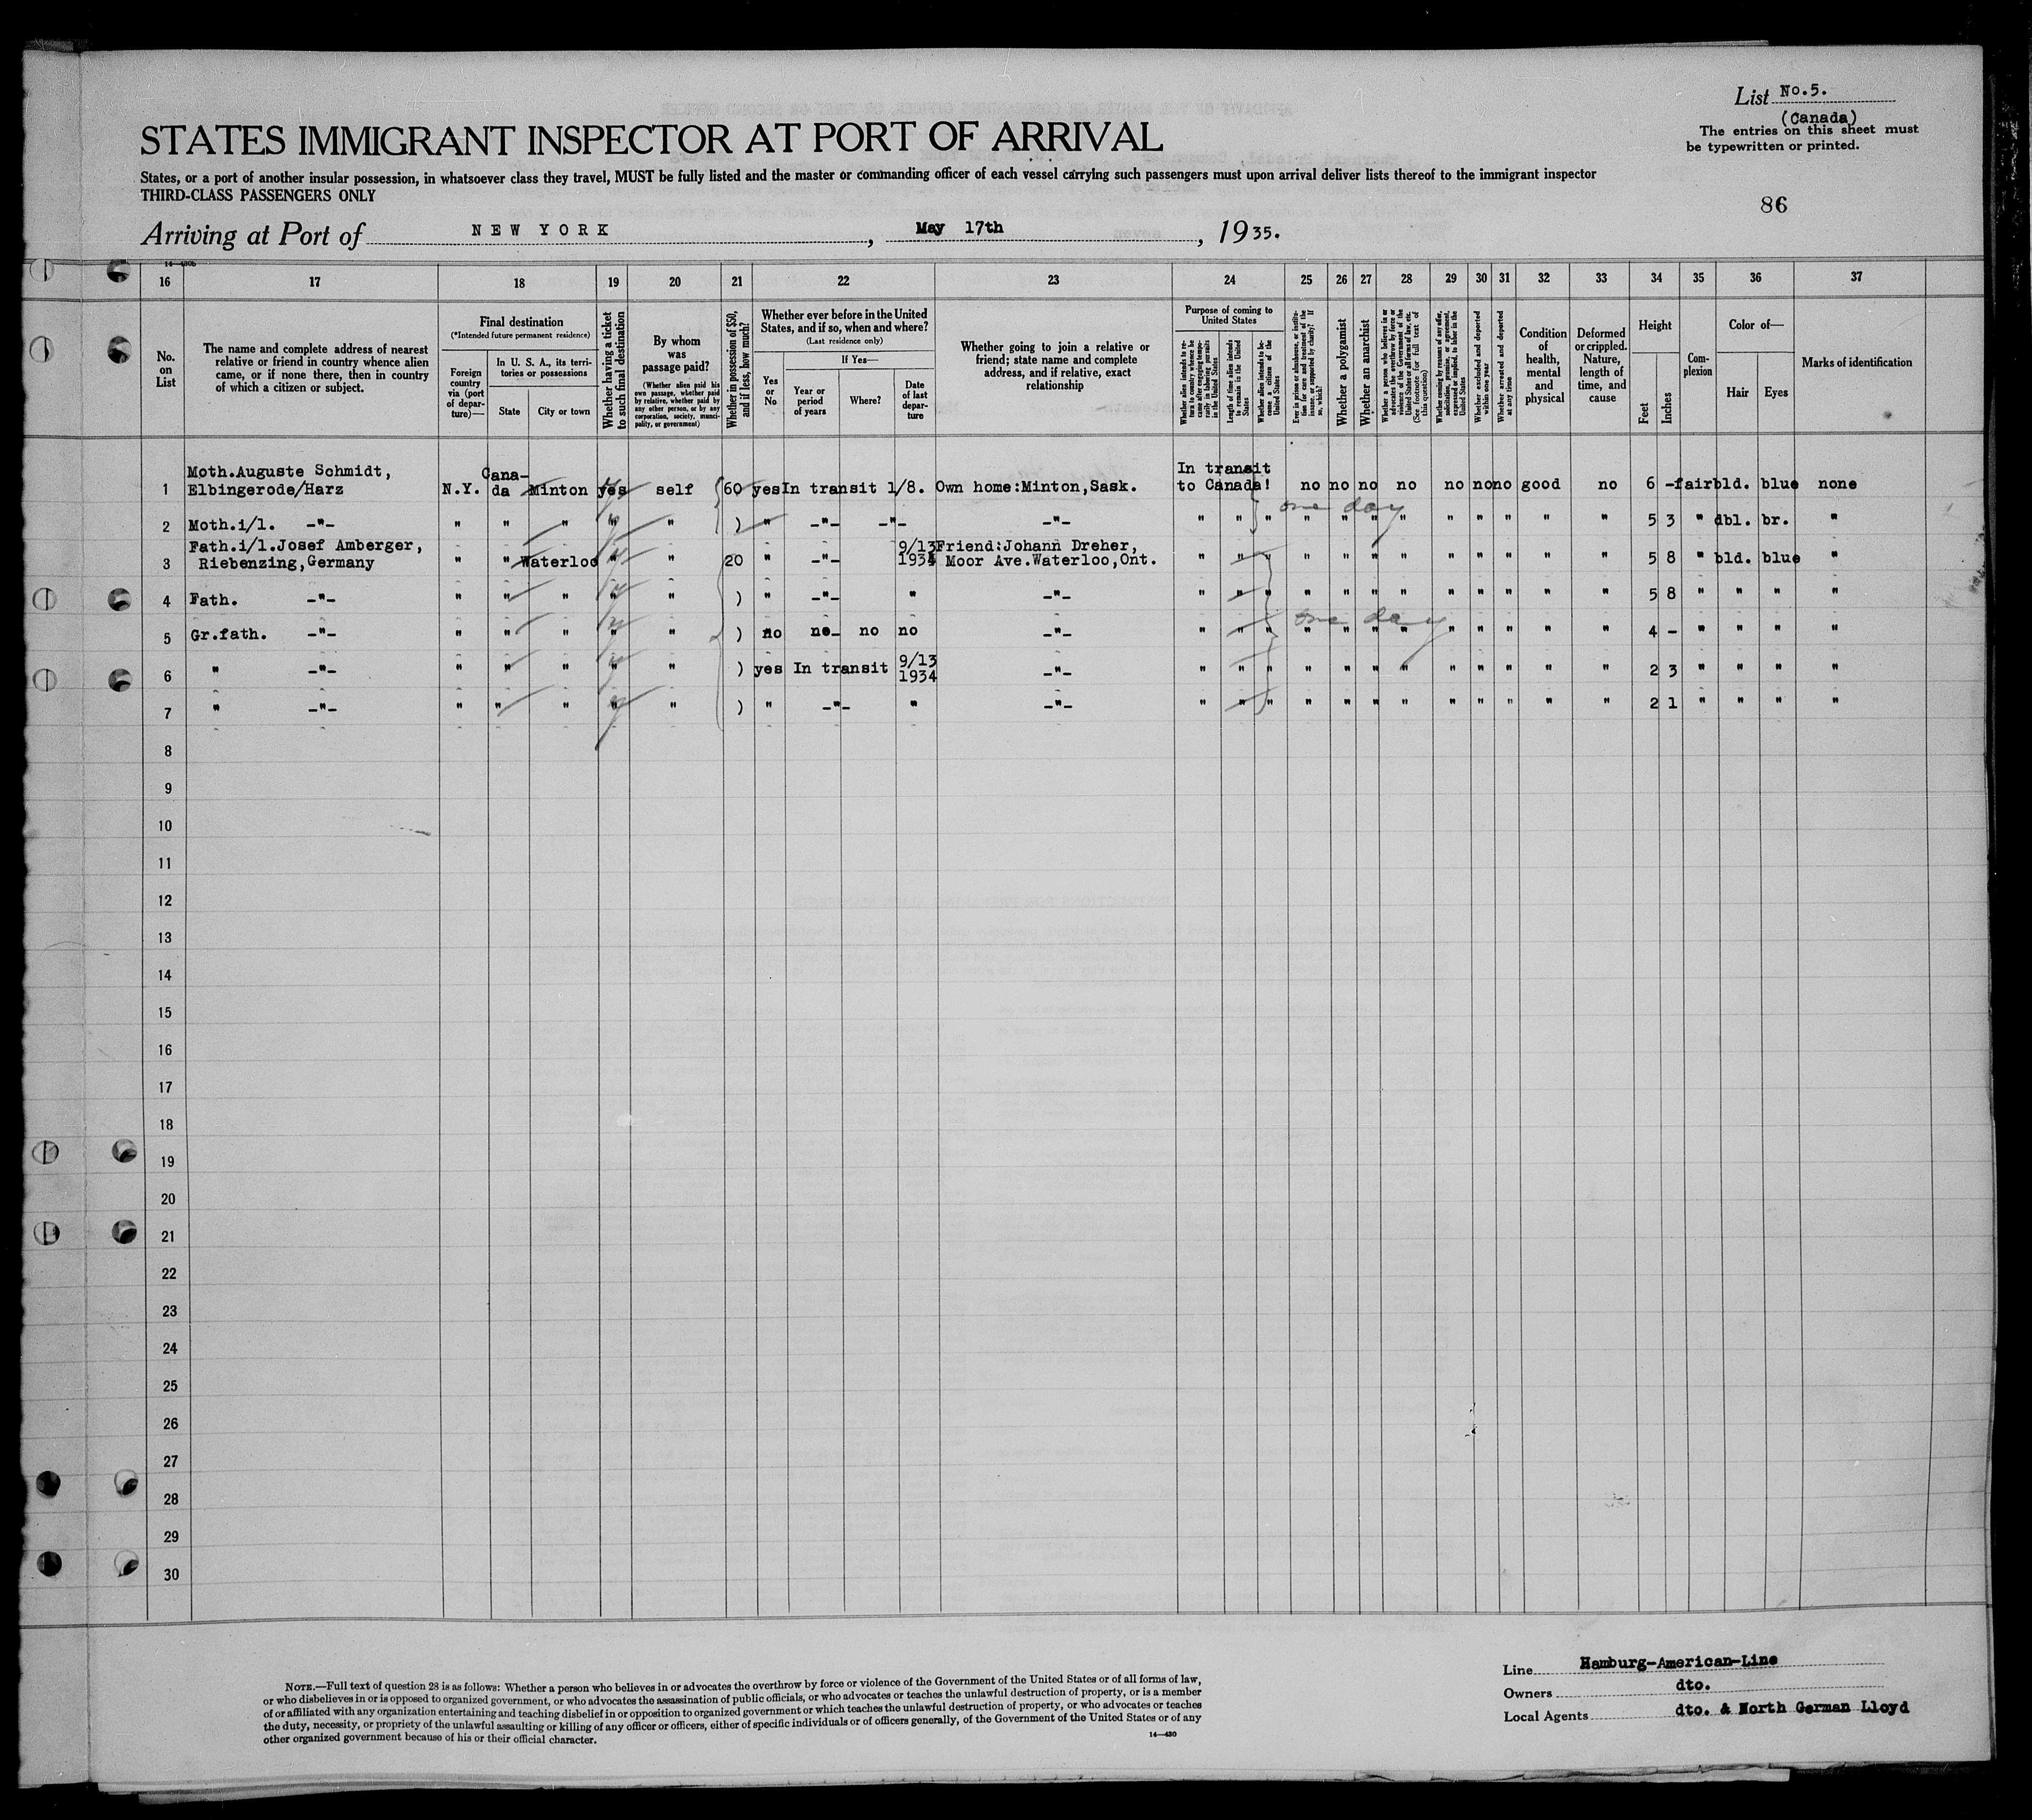 List No.5.
(Canada)
The entries on this sheet must
be typewritten or printed.
STATES IMMIGRANT INSPECTOR AT PORT OF ARRIVAL
States, or a port of another insular possession, in whatsoever class they travel, MUST be fully listed and the master or commanding officer of each vessel carrying such passengers must upon arrival deliver lists thereof to the immigrant inspector
THIRD-CLASS PASSENGERS ONLY
86
Arriving at Port of NEW YORK, May 17th, 1935.
16 17 18 19 20 21 22 23 24 25 26 27 28 29 30 31 32 33 34 35 36 37
No. on List
The name and complete address of nearest relative or friend in country whence alien came, or if none there, then in country of which a citizen or subject.
Final destination
(*Intended future permanent residence)
Foreign country via (port of departure)—
In U. S. A., its territories or possessions
State
City or town
Whether having a ticket to such final destination
By whom was passage paid?
(Whether alien paid his own passage, whether paid by relative, whether paid by any other person, or by any corporation, society, municipality, or government)
Whether in possession of $50, and if less, how much?
Whether ever before in the United States, and if so, when and where?
(Last residence only)
Yes or No
If Yes—
Year or period of years
Where?
Date of last departure
Whether going to join a relative or friend; state name and complete address, and if relative, exact relationship
Purpose of coming to United States
Whether alien intends to return to country whence he came after engaging temporarily in laboring pursuits in the United States
Length of time alien intends to remain in the United States
Whether alien intends to become a citizen of the United States
Ever in prison or almshouse, or institution for care and treatment of the insane, or supported by charity? If so, which?
Whether a polygamist
Whether an anarchist
Whether a person who believes in or advocates the overthrow by force or violence of the Government of the United States or all forms of law, etc. (See footnote for full text of this question)
Whether coming by reason of any offer, solicitation, promise, or agreement, expressed or implied, to labor in the United States
Whether excluded and deported within one year
Whether arrested and deported at any time
Condition of health, mental and physical
Deformed or crippled. Nature, length of time, and cause
Height
Feet
Inches
Complexion
Color of—
Hair
Eyes
Marks of identification
Moth.Auguste Schmidt, Cana- In transit
1 Elbingerode/Harz N.Y. da Minton yes self 60 yes In transit 1/8. Own home:Minton,Sask. to Canada! no no no no no no no good no 6 - fair bld. blue none
one day
2 Moth.i/l. -"- " " " " " ) " -"- -"- -"- " " " " " " " " " " " " 5 3 " dbl. br. "
Fath.i/l.Josef Amberger, 9/13 Friend:Johann Dreher,
3 Riebenzing,Germany " " Waterloo " " 20 " -"- 1934 Moor Ave.Waterloo,Ont. " " " " " " " " " " " " 5 8 " bld. blue "
4 Father. -"- " " " " " ) " -"- " -"- " " " " " " " " " " " " 5 8 " " " "
one day
5 Gr.fath. -"- " " " " " ) no no- no no -"- " " " " " " " " " " " " 4 - " " " "
6 " -"- " " " " " ) yes In transit 9/13 1934 -"- " " " " " " " " " " " " 2 3 " " " "
7 " -"- " " " " " ) " -"- " -"- " " " " " " " " " " " " 2 1 " " " "
8
9
10
11
12
13
14
15
16
17
18
19
20
21
22
23
24
25
26
27
28
29
30
NOTE.—Full text of question 28 is as follows: Whether a person who believes in or advocates the overthrow by force or violence of the Government of the United States or of all forms of law,
or who disbelieves in or is opposed to organized government, or who advocates the assassination of public officials, or who advocates or teaches the unlawful destruction of property, or is a member
of or affiliated with any organization entertaining and teaching disbelief in or opposition to organized government or which teaches the unlawful destruction of property, or who advocates or teaches
the duty, necessity, or propriety of the unlawful assaulting or killing of any officer or officers, either of specific individuals or of officers generally, of the Government of the United States or of any
other organized government because of his or their official character.
14—430
Line Hamburg-American-Line
Owners dto.
Local Agents dto. & North German Lloyd